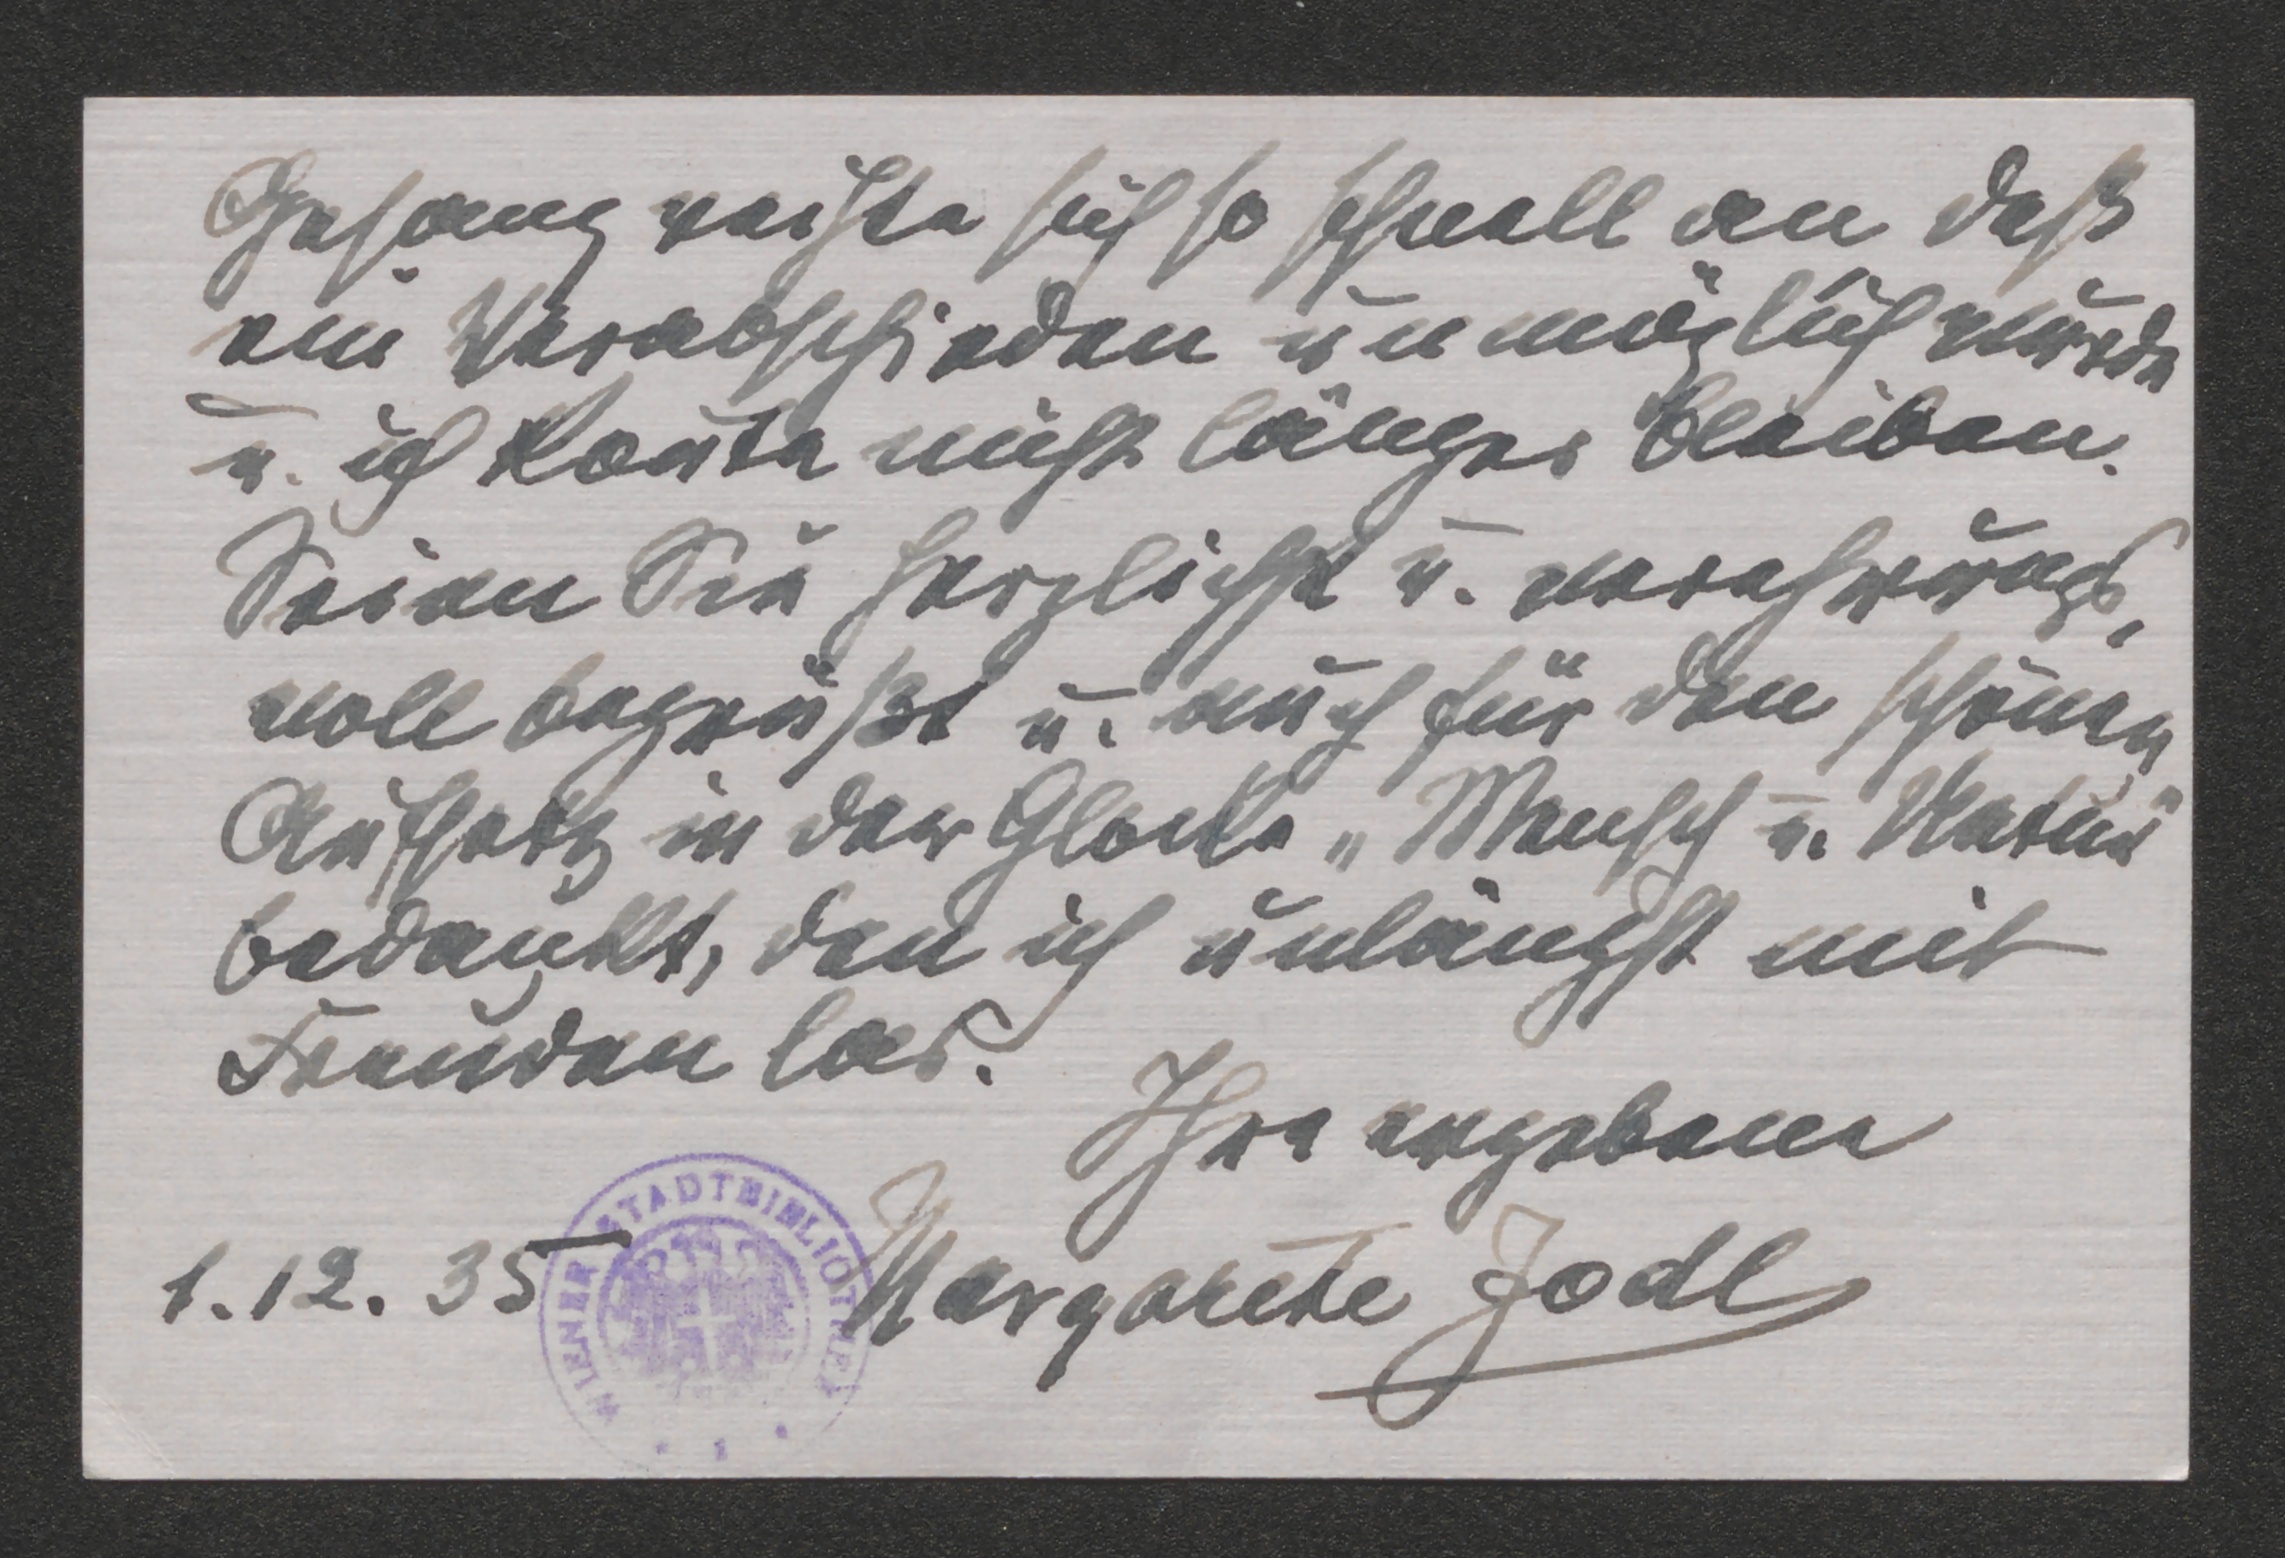 Gesang reihte sich so schnell an daß
ein Verabschieden unmöglich wurde
u. ich konte nicht länger bleiben.
Seien Sie herzlichst u. verehrungs,
voll begrüßt u. auch für den schönen
Aufsatz in der Glocke „Mensch u. Natur"
bedankt, den ich unlängst mit
Freuden las.
Ihre ergebene
1.12.35 Margarete Jodl
WIENER STADTBIBLIOTHEK